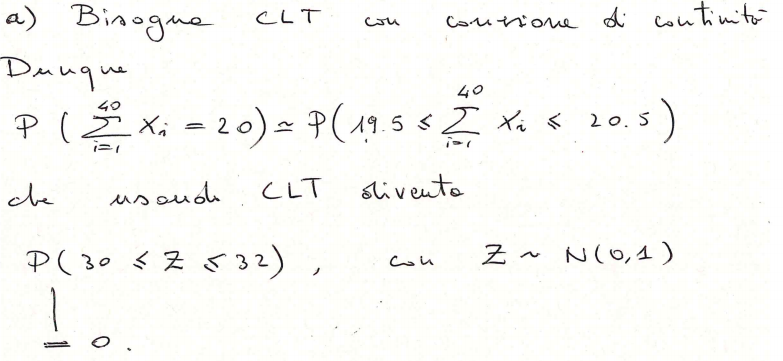 a) Bisogna CLT con correzione di continuità
Dunque
P ( ∑_{i=1}^{40} X_i = 20 ) ≃ P ( 19.5 ≤ ∑_{i=1}^{40} X_i ≤ 20.5 )
che usando CLT diventa
P ( 30 ≤ Z ≤ 32 ) , con Z ~ N(0,1)
= 0 .